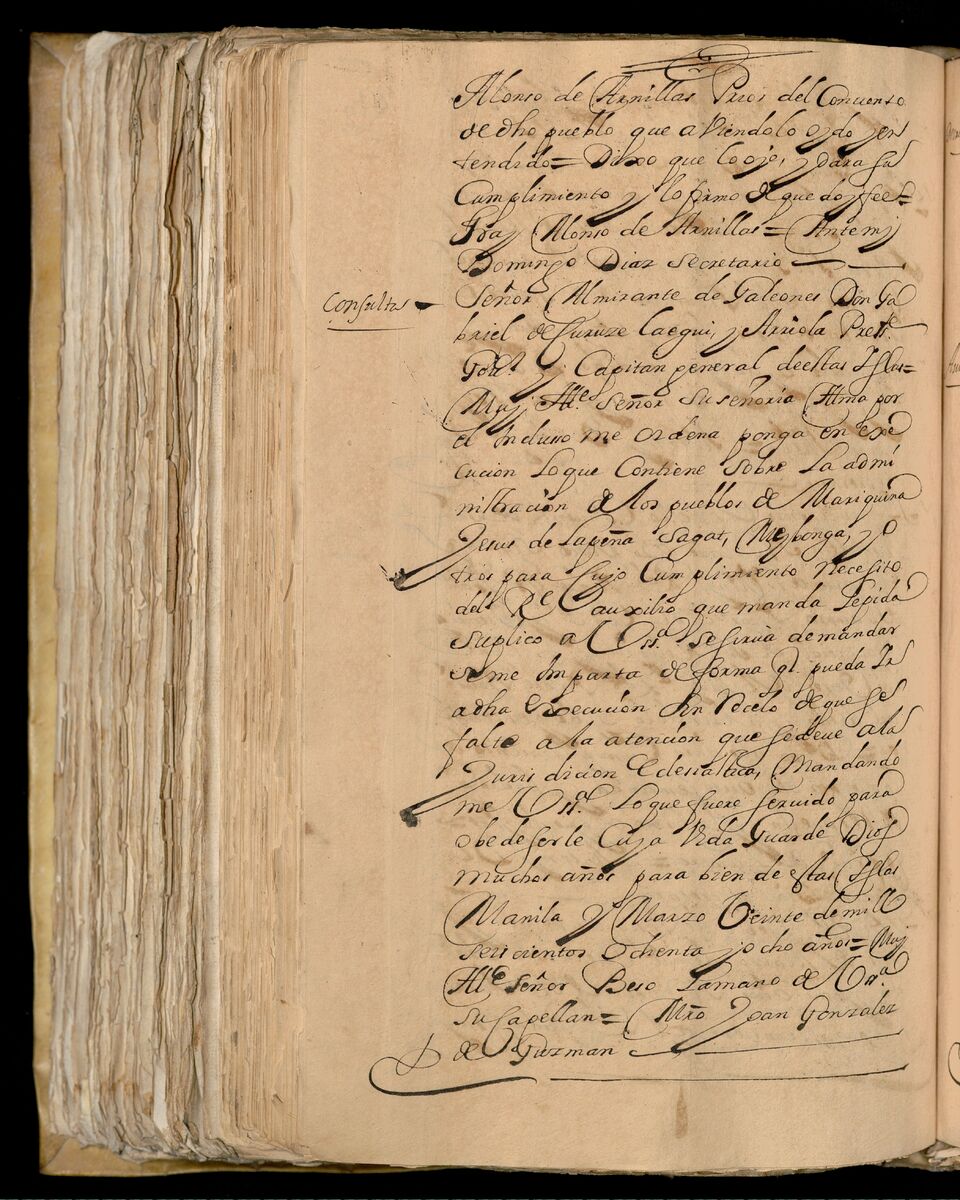 Alonso de Arnillas Prior del Conuento
de dho pueblo que auiendolo oydo y en
tendido= Dixo que lo oje, y dara su
Cumplimiento y lo firmo de que doy fee=
fray Alonso de Arnillas= Antemj
Domingo Diaz secretario
Consulta
Señor Almirante de Galeones Don Ga
briel de Curuze laegui, y Arriola Pres.te
Gou.or y Capitan general de estas Yslas=
Muj Ill.e Señor Su señoria Illma por
el Incluso me ordena ponga en exe
cucion Lo que Contiene sobre La admi
nistracion de los pueblos de Mariquina
Jesus de la peña Sagat, Meybonga, y o
tros para Cujo Cumplimiento Necesito
del R.l auxilio que manda Le pida
suplico a Vss.a se sirua de mandar
se me Imparta de forma q.e pueda Ir
a dha Execucion sin Recelo de que se
falte a la atencion que se deue a la
Jurisdicion Eclesiastica, Mandando
me Vss.a Lo que fuere seruido para
obedeserle Cuya Vida Guarde Dios
muchos años para bien de estas Yslas
Manila y Marzo Veinte de mill
seiscientos ochenta y ocho años= Muj
Ill.e señor Beso La mano de Vss.a
su Capellan= Mro Joan Gonzalez
de Guzman